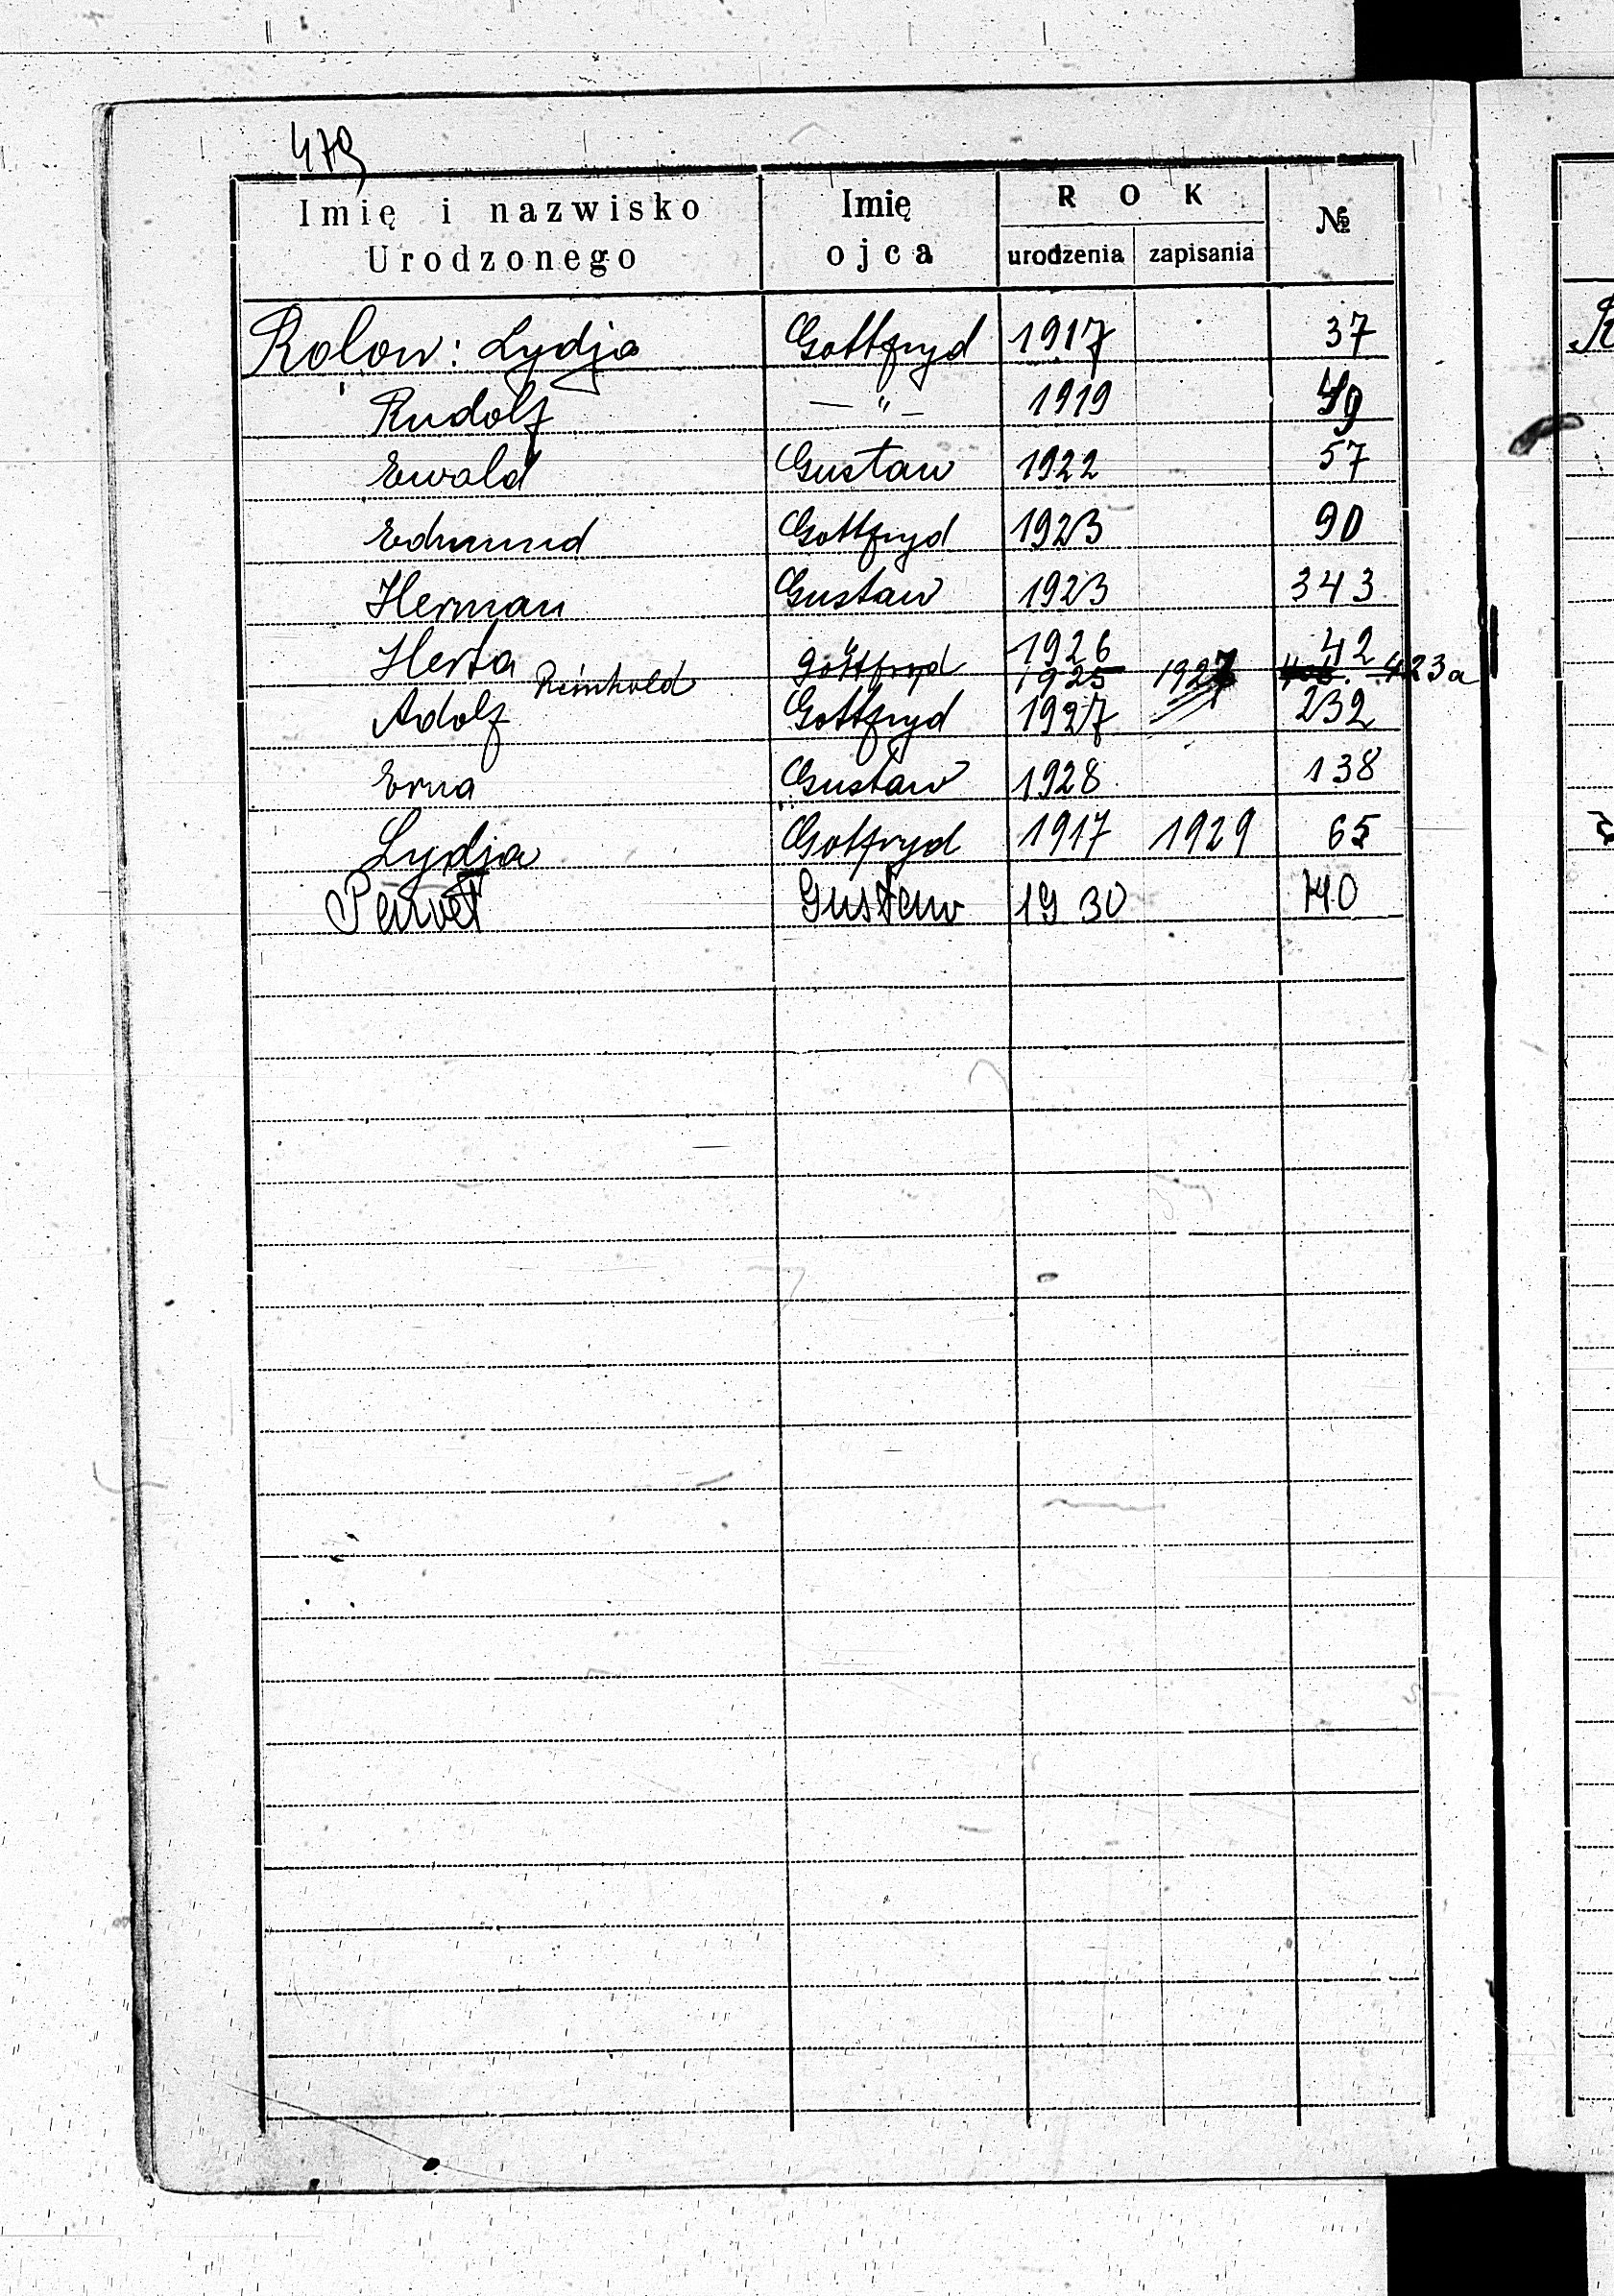 479
Imię i nazwisko Urodzonego Imię ojca ROK urodzenia zapisania №
Rolow: Lydja Gottfryd 1917 37
Rudolf — " — 1919 49
Ewald Gustaw 1922 57
Edmund Gottfryd 1923 90
Herman Gustaw 1923 343
Herta " 1926 42
Reinhold Gottfryd 1925 1927 423a
Adolf Gottfryd 1927 232
Erna Gustaw 1928 138
Lydja Gotfryd 1917 1929 65
Gustaw 1930 140